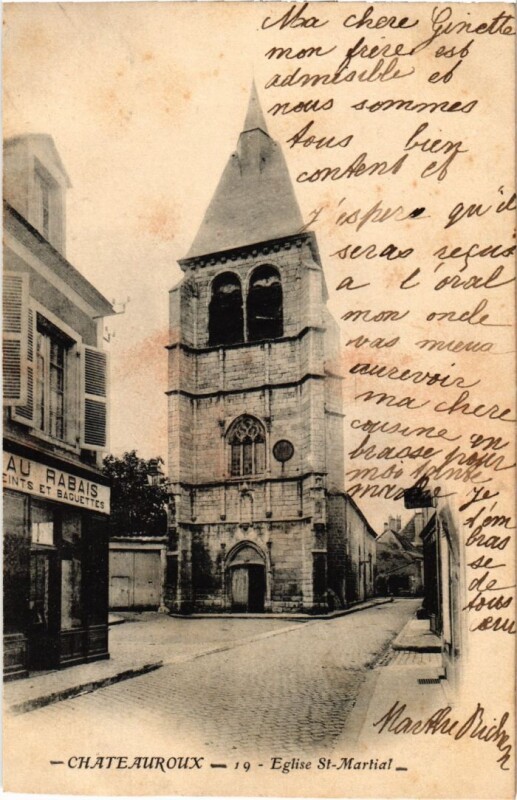 Ma chere Ginette
mon frere est
admisible et
nous sommes
tous bien
content et
j'espere qu'il
seras reçus
a l'oral
mon oncle
vas mieux
aurevoir
ma chere
cousine en
brasse pour
moi tante
marthe Je
t'em
bras
se
de
tous
Marthe
AU RABAIS
EINTS ET BAGUETTES
— CHATEAUROUX — 19 - Eglise St-Martial —